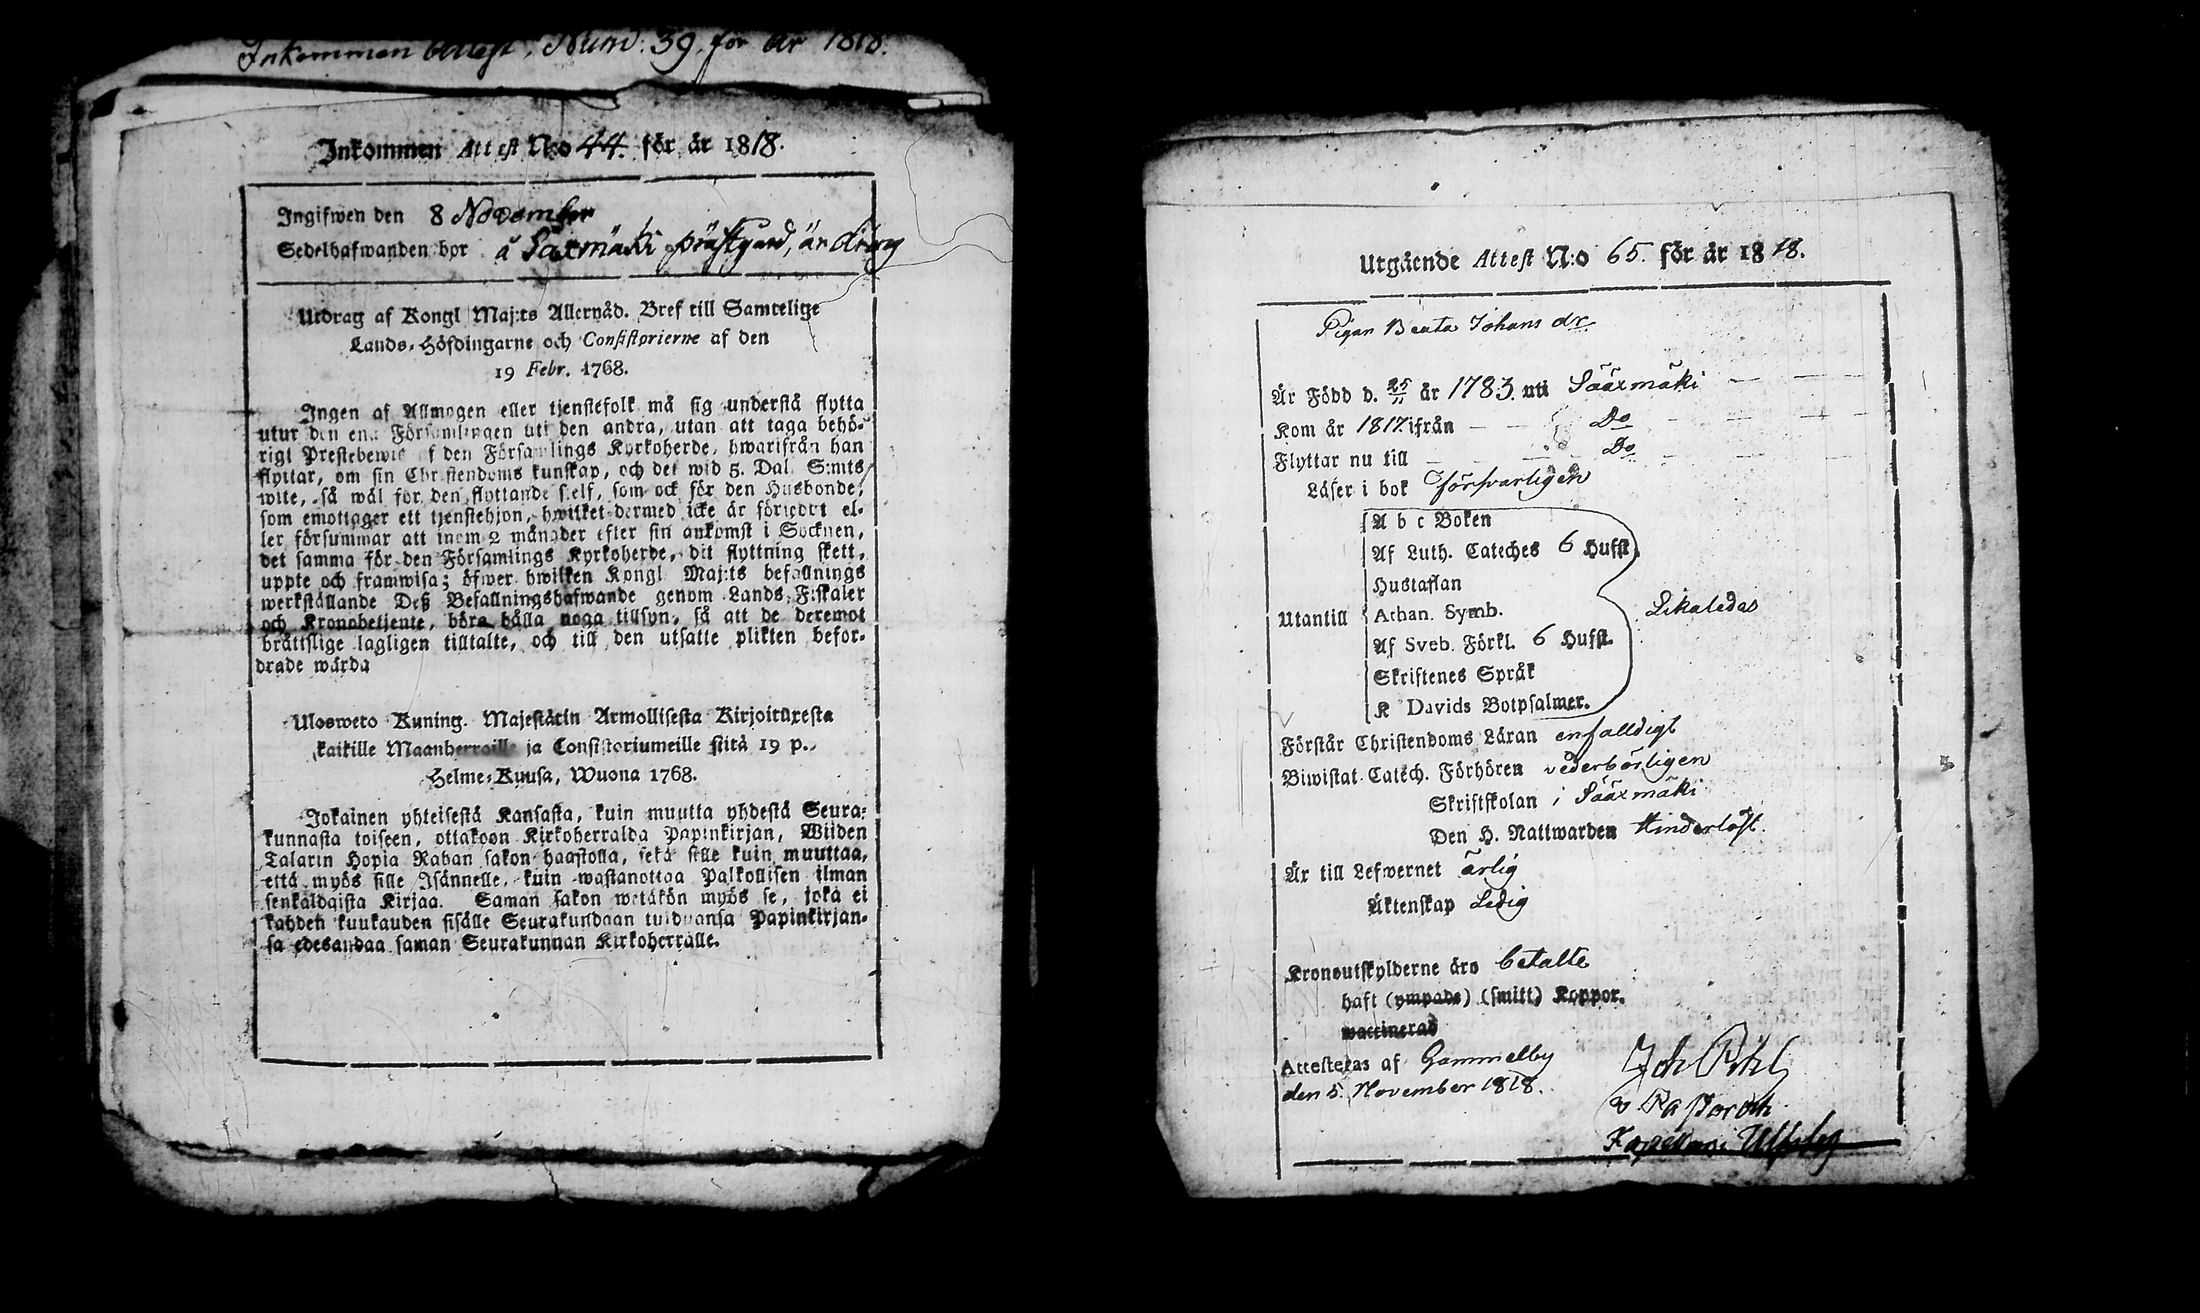 Inkommen Attest, Num: 39. för år 1818.
Inkommen Attest N:o 44. för år 1818.
Ingifwen den 8 November
Sedelhafwanden bor å Säxmäki prästgård, är dräng
Utdrag af Kongl Maj:ts Allernåd. Bref till Samtelige
Lands-Höfdingarne och Consistorierne af den
19 Febr. 1768.
Ingen af Allmogen eller tjenstefolk må sig understå flytta
utur den ena Församlingen uti den andra, utan att taga behö-
rigt Prestebewis af den Församlings Kyrkoherde, hwarifrån han
flyttar, om sin Christendoms kunskap, och det wid 5. Dal. S:mts
wite, så wäl för den flyttande sjelf, som ock för den Husbonde,
som emottager ett tjenstehjon, hwilket dermed icke är försedt el-
ler försummar att inom 2 månader efter sin ankomst i Socknen,
det samma för den Församlings Kyrkoherde, dit flyttning skett,
uppte och framwisa; öfwer hwilken Kongl Maj:ts befallnings
werkställande Deß Befallningshafwande genom Lands-Fiskaler
och Kronobetjente, böra hålla noga tillsyn, så att de deremot
bråttslige lagligen tilltalte, och till den utsatte plikten befor-
drade wärda
Ulosweto Kuning. Majestätin Armollisesta Kirjoituxesta
kaikille Maanherraille ja Consistoriumeille siitä 19 p.
Helme-Kuusa, Wuona 1768.
Jokainen yhteisestä Kansasta, kuin muutta yhdestä Seura-
kunnasta toiseen, ottakoon Kirkoherralda Papinkirjan, Wiiden
Talarin Hopia Rahan sakon haastolla, sekä sille kuin muuttaa,
että myös sille Isännelle, kuin wastanottaa Palkollisen ilman
senkaldaista Kirjaa. Saman sakon wetäkön myös se, joka ei
kahden kuukauden sisälle Seurakundaan tulduansa Papinkirjan-
sa edesandaa saman Seurakunnan Kirkoherralle.
Utgående Attest N:o 65. för år 1818.
Pigan Beata Johans dr.
Är Född d. 25/11 år 1783. uti Sääxmäki
Kom år 1817. ifrån Do
Flyttar nu till Do
Läser i bok försvarligen
A b c Boken
Af Luth. Cateches 6 Hufst.
Hustaflan
Utantill Athan. Symb. Likaledes
Af Sveb. Förkl. 6 Hufst.
Skriftenes Språk
K Davids Botpsalmer.
Förstår Christendoms Läran enfalldigt
Biwistat Catech. Förhören vederbörligen
Skriftskolan i Sääxmäki
Den H. Nattwarden Hinderlöst.
Är till Lefwernet ärlig
Äktenskap Ledig
Kronoutskylderne äro betalte
haft (ympade) (smitt) Koppor.
waccinerad
Attesteras af Gammelby
den 5. November 1818.
Joh Pihl
v Pastor och
Kapellan i Ulfsby